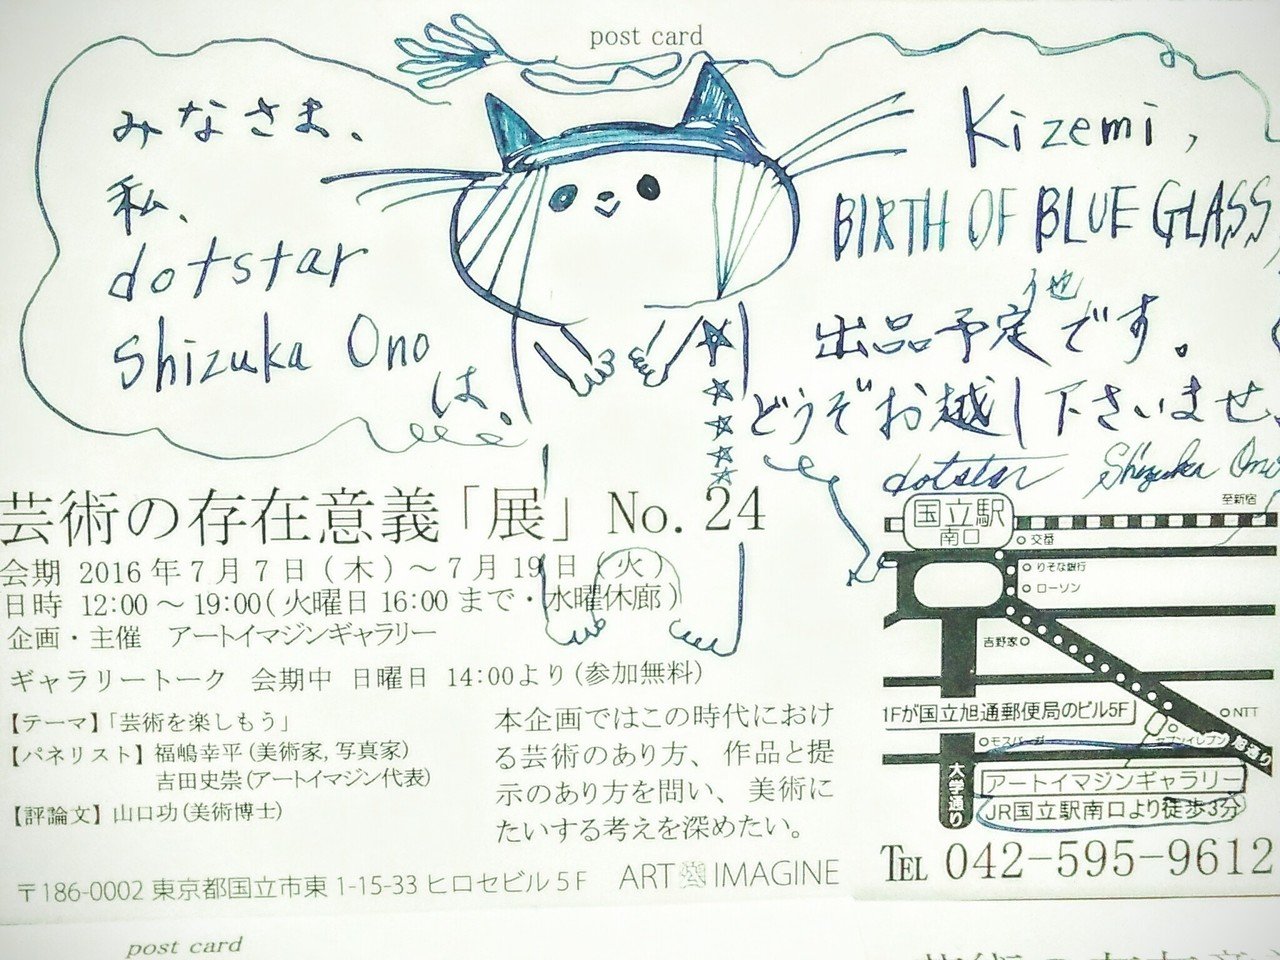 post card
みなさま、
私、
dotstar
Shizuka Ono
は。
Kizemi,
BIRTH OF BLUE GLASS,
他
出品予定です。
どうぞお越し下さいませ
dotstar Shizuka Ono
芸術の存在意義「展」No. 24
会期 2016年7月7日(木)～7月19日(火)
日時 12:00～19:00(火曜日16:00まで・水曜休廊)
企画・主催 アートイマジンギャラリー
ギャラリートーク 会期中 日曜日 14:00より(参加無料)
【テーマ】「芸術を楽しもう」
【パネリスト】福嶋幸平(美術家,写真家)
吉田史崇(アートイマジン代表)
【評論文】山口功(美術博士)
本企画ではこの時代におけ
る芸術のあり方、作品と提
示のあり方を問い、美術に
たいする考えを深めたい。
〒186-0002 東京都国立市東1-15-33 ヒロセビル5F
ART IMAGINE
至新宿
国立駅
南口
交番
りそな銀行
ローソン
吉野家
1Fが国立旭通郵便局のビル5F
NTT
モスバーガー
セブンイレブン
旭通り
大学通り
アートイマジンギャラリー
JR国立駅南口より徒歩3分
TEL 042-595-9612
post card